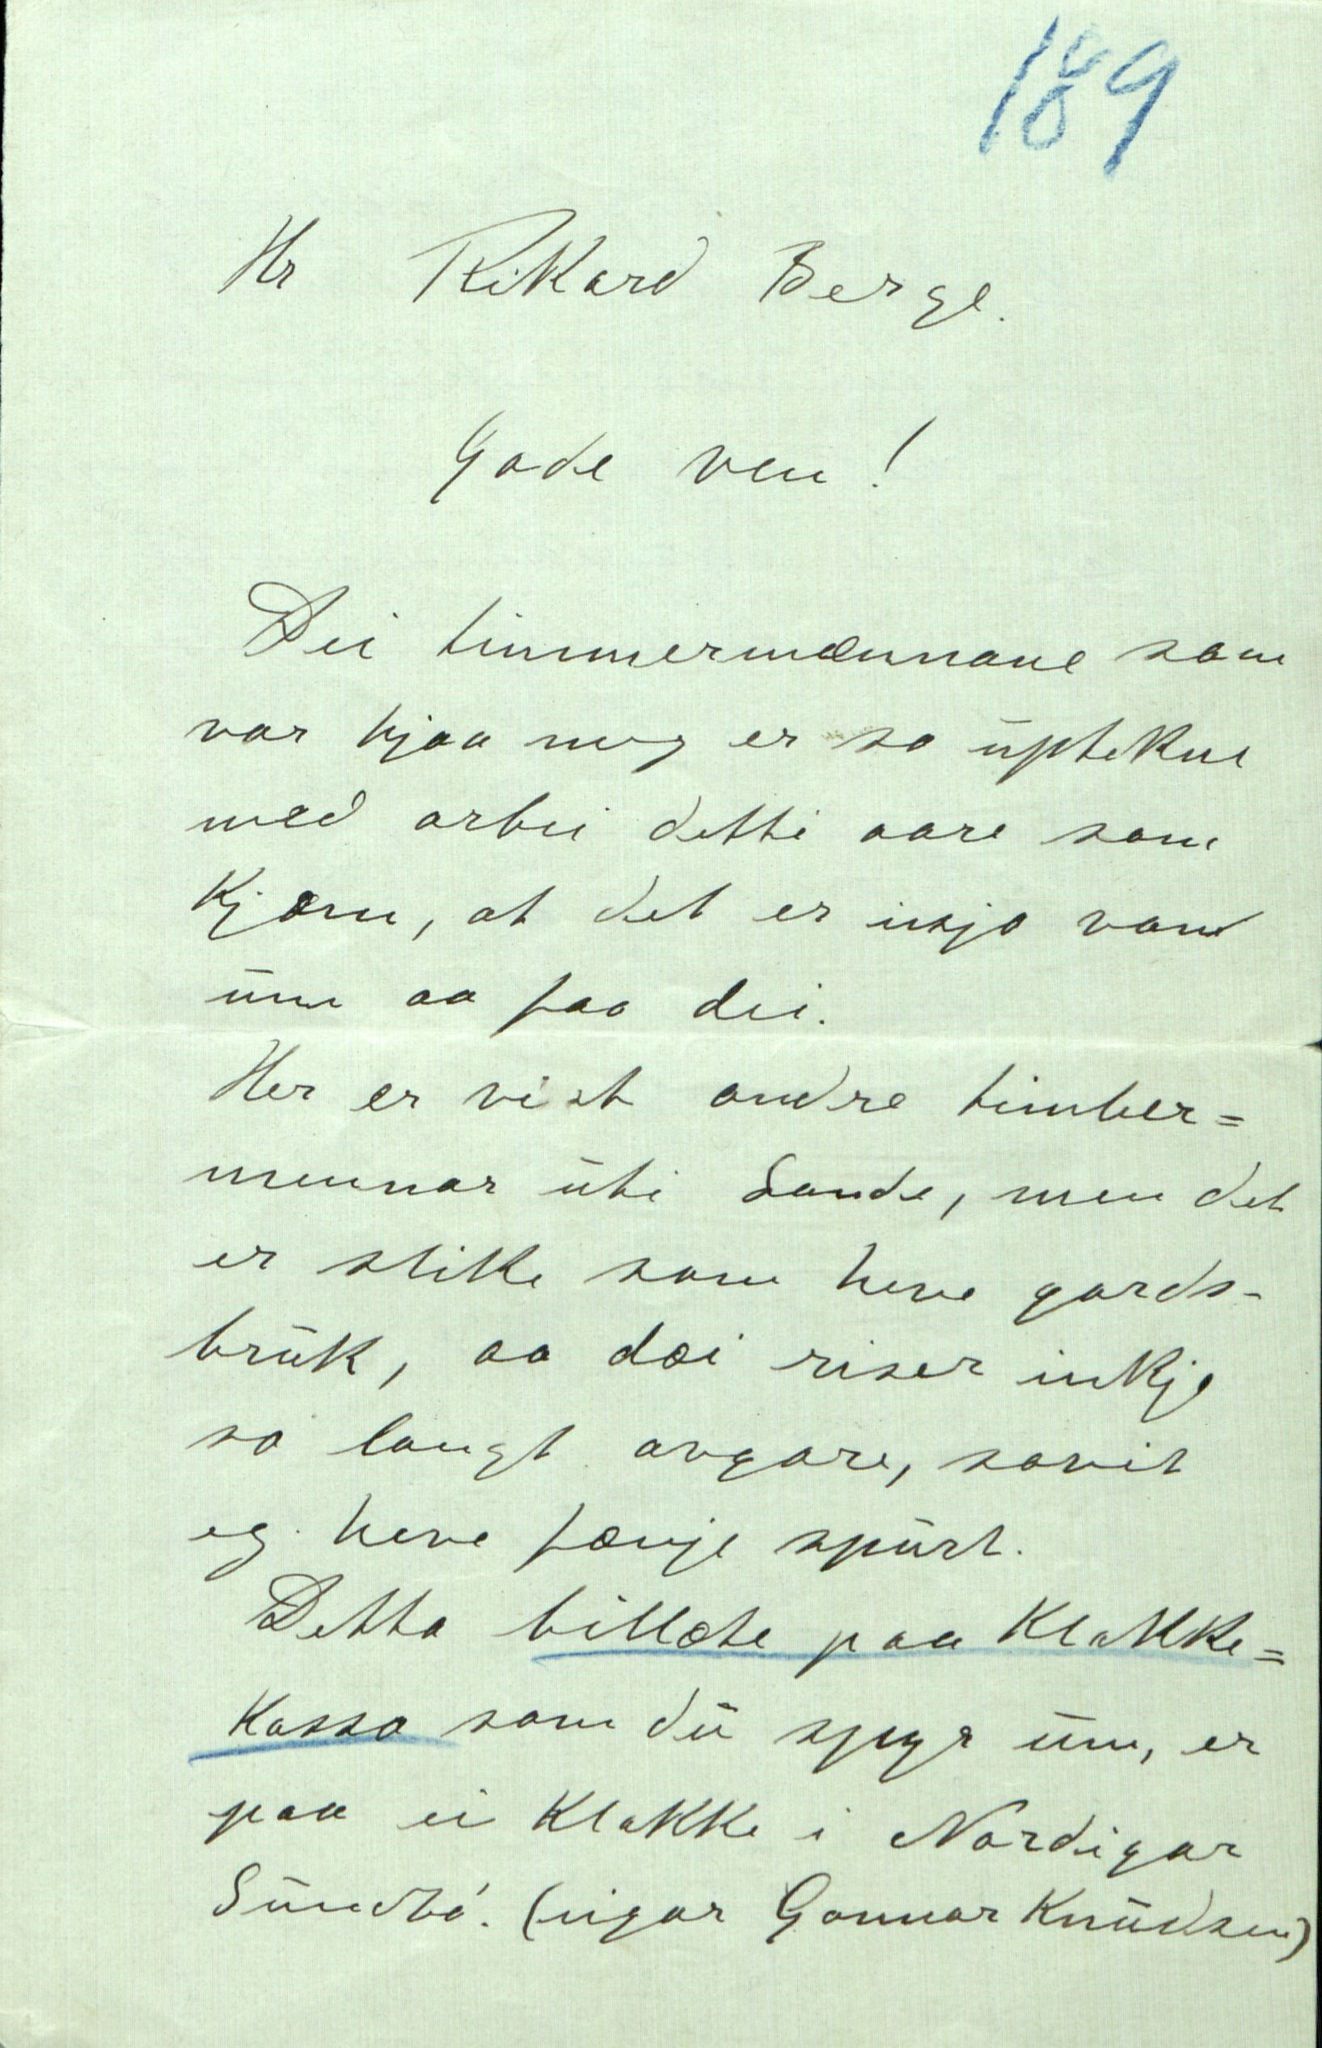 189
Hr Rikard Berge.
Gode ven!
Dei timmermænnane som
var hjaa meg er so uptekne
med arbei detti aare som
kjæm, at det er usjo
um aa faa dei.
Her er vist andre timber=
mennar uti Sande, men det
er slike som heve gards-
bruk, aa dæi riser inkje
so langt avgare, sovit
eg heve fænje spurt.
Detta billæte paa Klokke=
kassa som du spyr um, er
paa ei Klokke i Nordigar
Sundbö. (eigar Gonnar Knudsen)